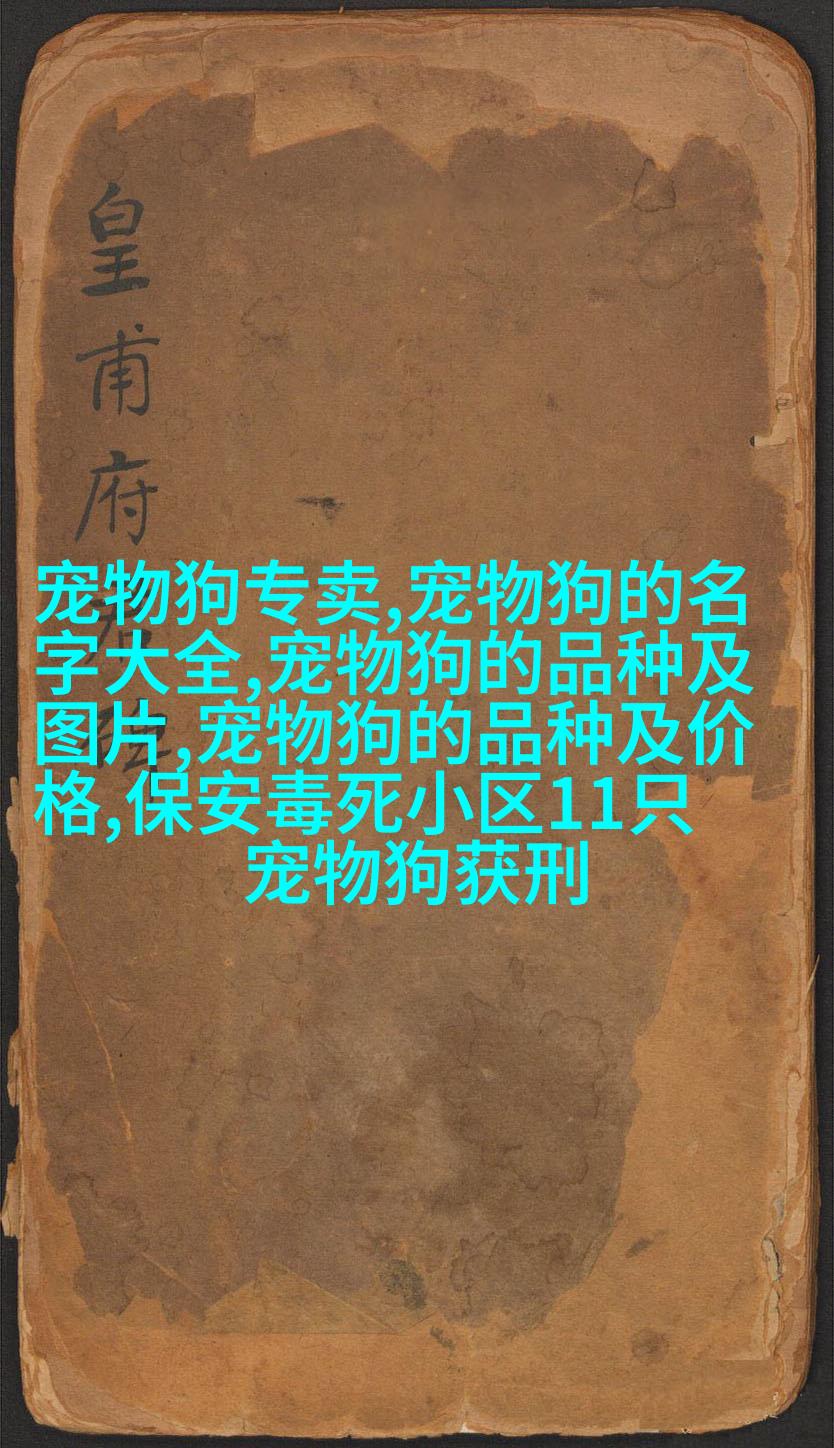 皇甫府君碑
宠物狗专卖,宠物狗的名
字大全,宠物狗的品种及
图片,宠物狗的品种及价
格,保安毒死小区11只
宠物狗获刑